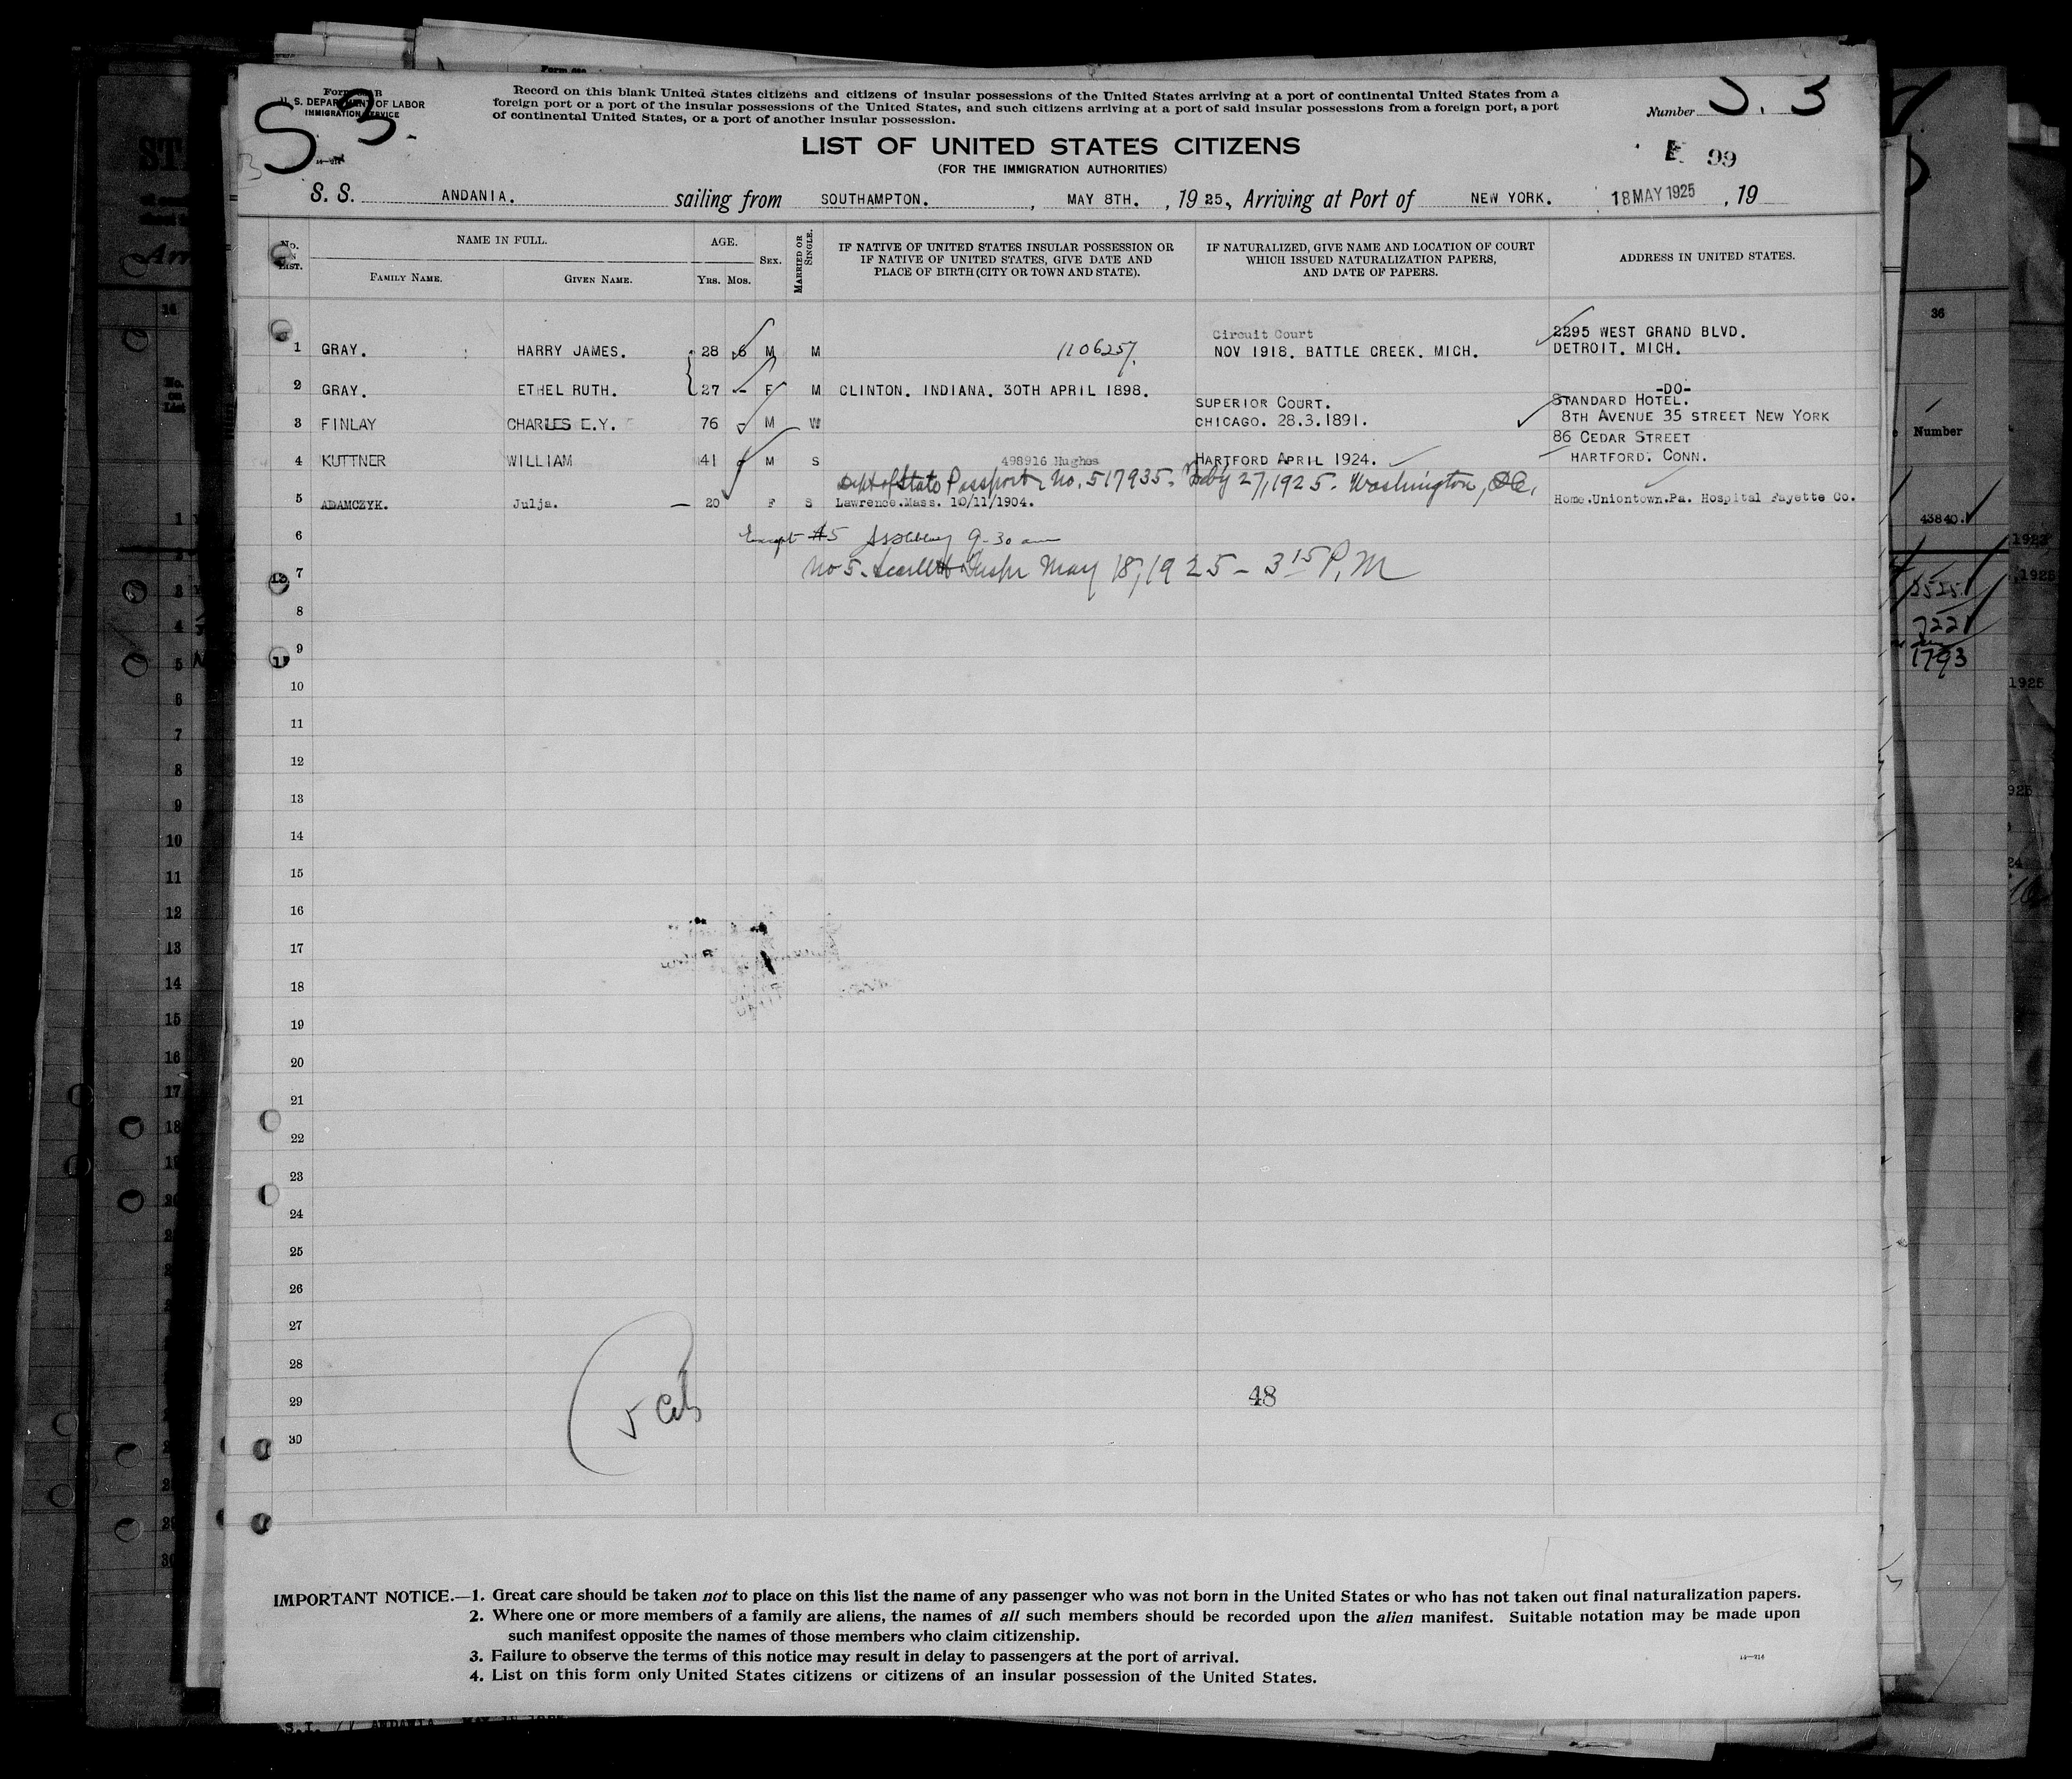 U. S. DEPARTMENT OF LABOR
IMMIGRATION SERVICE
S 3-
Record on this blank United States citizens and citizens of insular possessions of the United States arriving at a port of continental United States from a
foreign port or a port of the insular possessions of the United States, and such citizens arriving at a port of said insular possessions from a foreign port, a port
of continental United States, or a port of another insular possession.
Number S. 3
LIST OF UNITED STATES CITIZENS
(FOR THE IMMIGRATION AUTHORITIES)
99
S. S. ANDANIA. sailing from SOUTHAMPTON. , MAY 8TH. , 19 25, Arriving at Port of NEW YORK. 18 MAY 1925 , 19
No. ON LIST. NAME IN FULL. AGE. SEX. MARRIED OR SINGLE.
FAMILY NAME. GIVEN NAME. YRS. MOS.
IF NATIVE OF UNITED STATES INSULAR POSSESSION OR
IF NATIVE OF UNITED STATES, GIVE DATE AND
PLACE OF BIRTH (CITY OR TOWN AND STATE).
IF NATURALIZED, GIVE NAME AND LOCATION OF COURT
WHICH ISSUED NATURALIZATION PAPERS,
AND DATE OF PAPERS.
ADDRESS IN UNITED STATES.
Circuit Court 2295 WEST GRAND BLVD.
1 GRAY. HARRY JAMES. 28 6 M M 1106257. NOV 1918. BATTLE CREEK. MICH. DETROIT. MICH.
2 GRAY. ETHEL RUTH. 27 - F M CLINTON. INDIANA. 30TH APRIL 1898. -DO-
SUPERIOR COURT. STANDARD HOTEL.
3 FINLAY CHARLES E.Y. 76 M W CHICAGO. 28.3.1891. 8TH AVENUE 35 STREET NEW YORK
86 CEDAR STREET
4 KUTTNER WILLIAM 41 M S 498916 Hughes HARTFORD APRIL 1924. HARTFORD. CONN.
Dept of State Passport No. 517935. 27, 1925. Washington, D.C.
5 ADAMCZYK. Julja. — 20 F S Lawrence.Mass. 10/11/1904. Home.Uniontown.Pa. Hospital Fayette Co.
6 Except #5 9-30 am
7 No 5. Inspr May 18, 1925 - 3 15 P.M
8
9
10
11
12
13
14
15
16
17
18
19
20
21
22
23
24
25
26
27
28
29 5 Cit 48
30
IMPORTANT NOTICE.—1. Great care should be taken not to place on this list the name of any passenger who was not born in the United States or who has not taken out final naturalization papers.
2. Where one or more members of a family are aliens, the names of all such members should be recorded upon the alien manifest. Suitable notation may be made upon
such manifest opposite the names of those members who claim citizenship.
3. Failure to observe the terms of this notice may result in delay to passengers at the port of arrival.
4. List on this form only United States citizens or citizens of an insular possession of the United States.
36
Number
43840.
1793